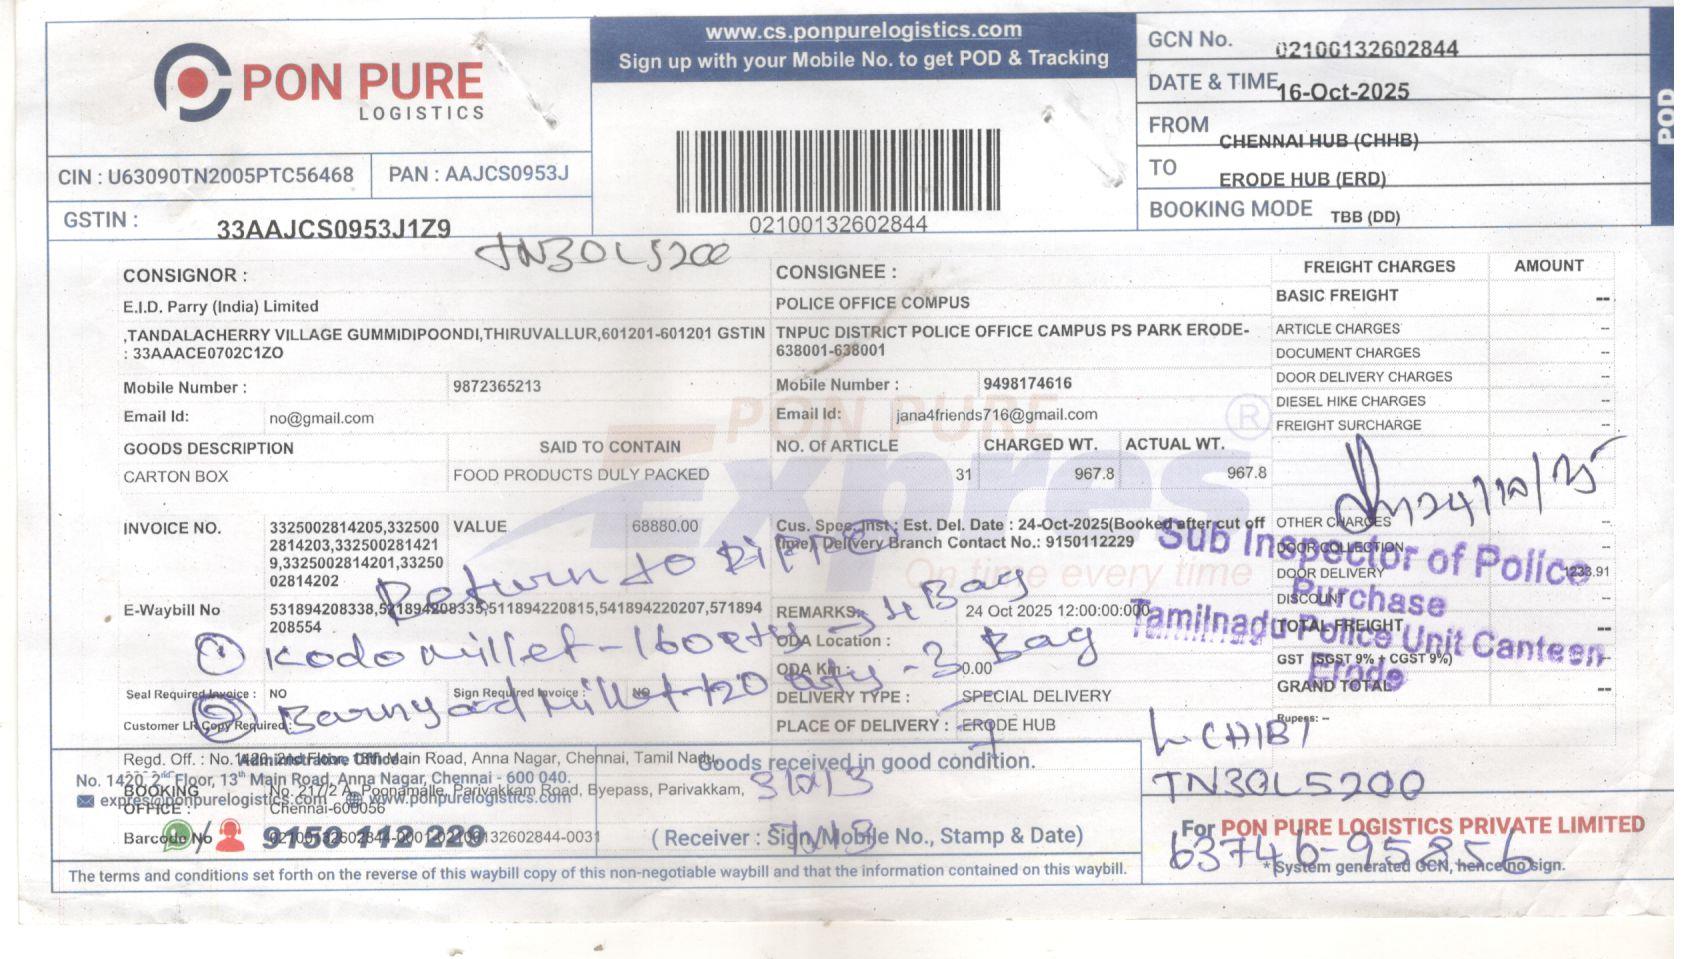 www.cs.ponpurelogistics.com
Sign up with your Mobile No. to get POD & Tracking
PON PURE
LOGISTICS
CIN : U63090TN2005PTC56468
PAN : AAJCS0953J
GSTIN :
33AAJCS0953J1Z9
02100132602844
GCN No.
02100132602844
DATE & TIME
16-Oct-2025
FROM
CHENNAI HUB (CHHB)
TO
ERODE HUB (ERD)
BOOKING MODE
TBB (DD)
POD
TN30L5200
CONSIGNOR :
E.I.D. Parry (India) Limited
,TANDALACHERRY VILLAGE GUMMIDIPOONDI,THIRUVALLUR,601201-601201 GSTIN
: 33AAACE0702C1ZO
Mobile Number :
9872365213
Email Id:
no@gmail.com
CONSIGNEE :
POLICE OFFICE COMPUS
TNPUC DISTRICT POLICE OFFICE CAMPUS PS PARK ERODE-
638001-638001
Mobile Number :
9498174616
Email Id:
jana4friends716@gmail.com
GOODS DESCRIPTION
SAID TO CONTAIN
NO. Of ARTICLE
CHARGED WT.
ACTUAL WT.
CARTON BOX
FOOD PRODUCTS DULY PACKED
31
967.8
967.8
PON PURE
Expres
On time every time
INVOICE NO.
3325002814205,332500
2814203,332500281421
9,3325002814201,33250
02814202
VALUE
68880.00
Cus. Spec. Inst : Est. Del. Date : 24-Oct-2025(Booked after cut off
time) Delivery Branch Contact No.: 9150112229
E-Waybill No
531894208338,521894208335,511894220815,541894220207,571894
208554
REMARKS
24 Oct 2025 12:00:00:000
ODA Location :
ODA Km :
0.00
Seal Required Invoice :
NO
Sign Required Invoice :
NO
DELIVERY TYPE :
SPECIAL DELIVERY
Customer LR Copy Required :
PLACE OF DELIVERY :
ERODE HUB
FREIGHT CHARGES
AMOUNT
BASIC FREIGHT
--
ARTICLE CHARGES
--
DOCUMENT CHARGES
--
DOOR DELIVERY CHARGES
--
DIESEL HIKE CHARGES
--
FREIGHT SURCHARGE
--
OTHER CHARGES
--
DOOR COLLECTION
--
DOOR DELIVERY
1233.91
DISCOUNT
--
TOTAL FREIGHT
--
GST (SGST 9% + CGST 9%)
--
GRAND TOTAL
--
Rupees: --
24/10/25
Sub Inspector of Police
Purchase
Tamilnadu Police Unit Canteen
Erode
Return to
① Kodo millet - 160 qty → 4 Bag
② Barnyard Millet - 120 qty - 3 Bag
7
Regd. Off. : No.1420, 2nd Floor, 13th Main Road, Anna Nagar, Chennai, Tamil Nadu,
Administrative Office
No. 1420, 2nd Floor, 13th Main Road, Anna Nagar, Chennai - 600 040.
BOOKING
OFFICE :
No. 217/2 A, Poonamalle, Parivakkam Road, Byepass, Parivakkam,
Chennai-600056
expres@ponpurelogistics.com
www.ponpurelogistics.com
Barcode No
02100132602844-0001-02100132602844-0031
9150 112 229
Goods received in good condition.
(Receiver : Sign/Mobile No., Stamp & Date)
TN30L5200
63746-95856
For PON PURE LOGISTICS PRIVATE LIMITED
*System generated GCN, hence no sign.
The terms and conditions set forth on the reverse of this waybill copy of this non-negotiable waybill and that the information contained on this waybill.